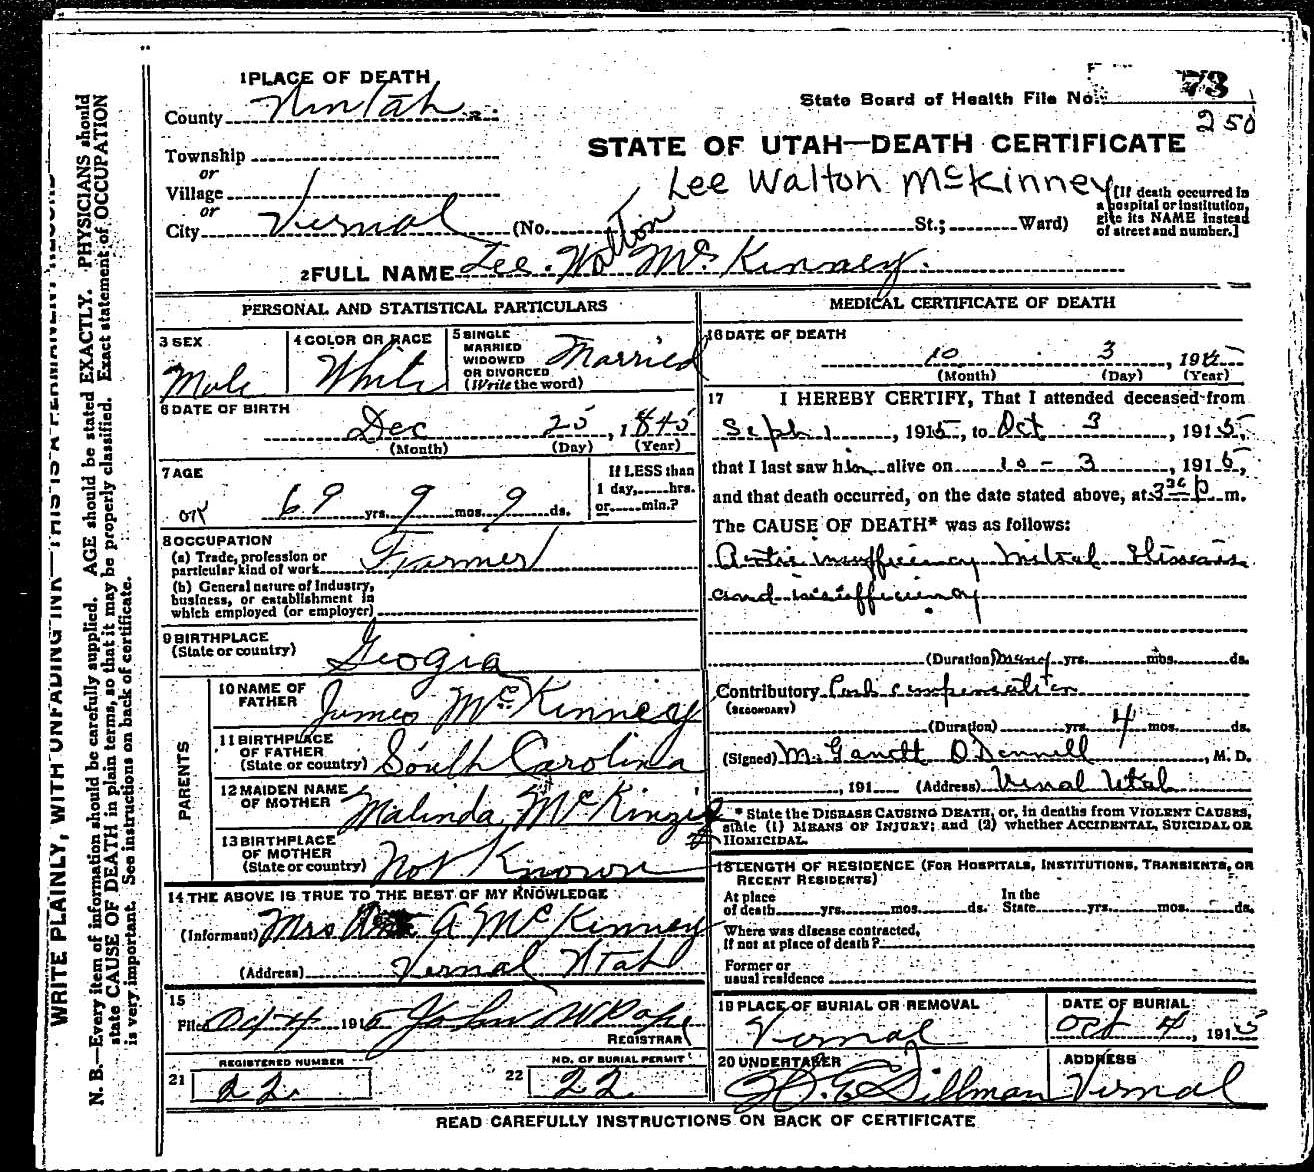 1 PLACE OF DEATH
State Board of Health File No. 73
250
County Uintah
STATE OF UTAH—DEATH CERTIFICATE
Township
or
Village
or
City Vernal (No. St.; Ward)
Lee Walton McKinney
[If death occurred in
a hospital or institution,
give its NAME instead
of street and number.]
2 FULL NAME Lee Walton McKinney.
Walton
PERSONAL AND STATISTICAL PARTICULARS
3 SEX
Male
4 COLOR OR RACE
White
5 SINGLE
MARRIED
WIDOWED
OR DIVORCED
(Write the word)
Married
6 DATE OF BIRTH
Dec 25, 1845
(Month) (Day) (Year)
7 AGE
69 yrs. 9 mos. 9 ds.
If LESS than
1 day, hrs.
or min.?
OK
8 OCCUPATION
(a) Trade, profession or
particular kind of work Farmer
(b) General nature of Industry,
business, or establishment in
which employed (or employer)
9 BIRTHPLACE
(State or country)
Geogia
PARENTS
10 NAME OF
FATHER
James McKinney
11 BIRTHPLACE
OF FATHER
(State or country)
South Carolina
12 MAIDEN NAME
OF MOTHER
Malinda McKinzie
13 BIRTHPLACE
OF MOTHER
(State or country)
Not Known
14 THE ABOVE IS TRUE TO THE BEST OF MY KNOWLEDGE
(Informant) Mrs A McKinney
(Address) Vernal Utah
15
Filed Oct 4 1915 John W Pope
REGISTRAR
REGISTERED NUMBER
21 22.
NO. OF BURIAL PERMIT
22 22
MEDICAL CERTIFICATE OF DEATH
16 DATE OF DEATH
10 3, 1915
(Month) (Day) (Year)
17 I HEREBY CERTIFY, That I attended deceased from
Seph 1, 1915, to Oct 3, 1915,
that I last saw him alive on 10 - 3, 1915,
and that death occurred, on the date stated above, at 3 30 P m.
The CAUSE OF DEATH* was as follows:
Aortic insufficiency Mitral Stenosis
and insufficiency
(Duration) many yrs. mos. ds.
Contributory Lost compensation
(SECONDARY)
(Duration) yrs. 4 mos. ds.
(Signed) M. Garrett O'Donnell, M. D.
, 191 (Address) Vernal Utah
* State the DISEASE CAUSING DEATH, or, in deaths from VIOLENT CAUSES,
state (1) MEANS OF INJURY; and (2) whether ACCIDENTAL, SUICIDAL OR
HOMICIDAL.
18 LENGTH OF RESIDENCE (FOR HOSPITALS, INSTITUTIONS, TRANSIENTS, OR
RECENT RESIDENTS)
At place
of death yrs. mos. ds.
In the
State yrs. mos. ds.
Where was disease contracted,
if not at place of death?
Former or
usual residence
19 PLACE OF BURIAL OR REMOVAL
Vernal
DATE OF BURIAL
Oct 4, 1915
20 UNDERTAKER
Dillman
ADDRESS
Vernal
READ CAREFULLY INSTRUCTIONS ON BACK OF CERTIFICATE
WRITE PLAINLY, WITH UNFADING INK—THIS IS A PERMANENT RECORD
N. B.—Every item of information should be carefully supplied. AGE should be stated EXACTLY. PHYSICIANS should
state CAUSE OF DEATH in plain terms, so that it may be properly classified. Exact statement of OCCUPATION
is very important. See instructions on back of certificate.